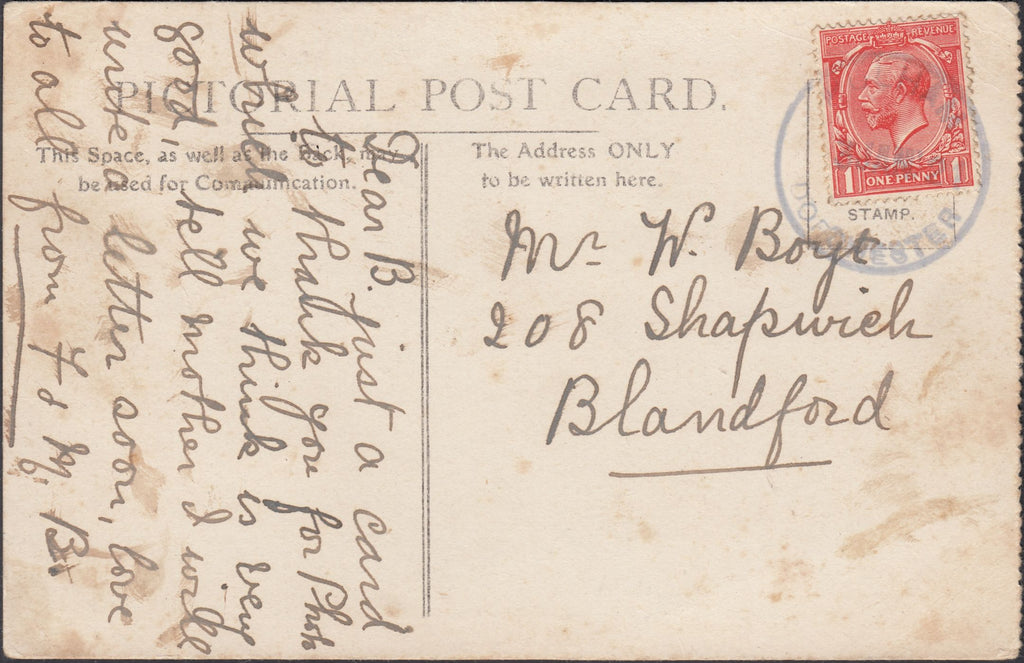 PICTORIAL POST CARD.
This Space, as well as the Back, may
be used for Communication.
The Address ONLY
to be written here.
POSTAGE REVENUE
1 ONE PENNY 1
STAMP.
DORCHESTER
Mr W. Boyt
208 Shapwich
Blandford
Dear B. just a card
to thank you for Photo
which we think is very
good, tell mother I will
write a letter soon, love
to all from F & M, B